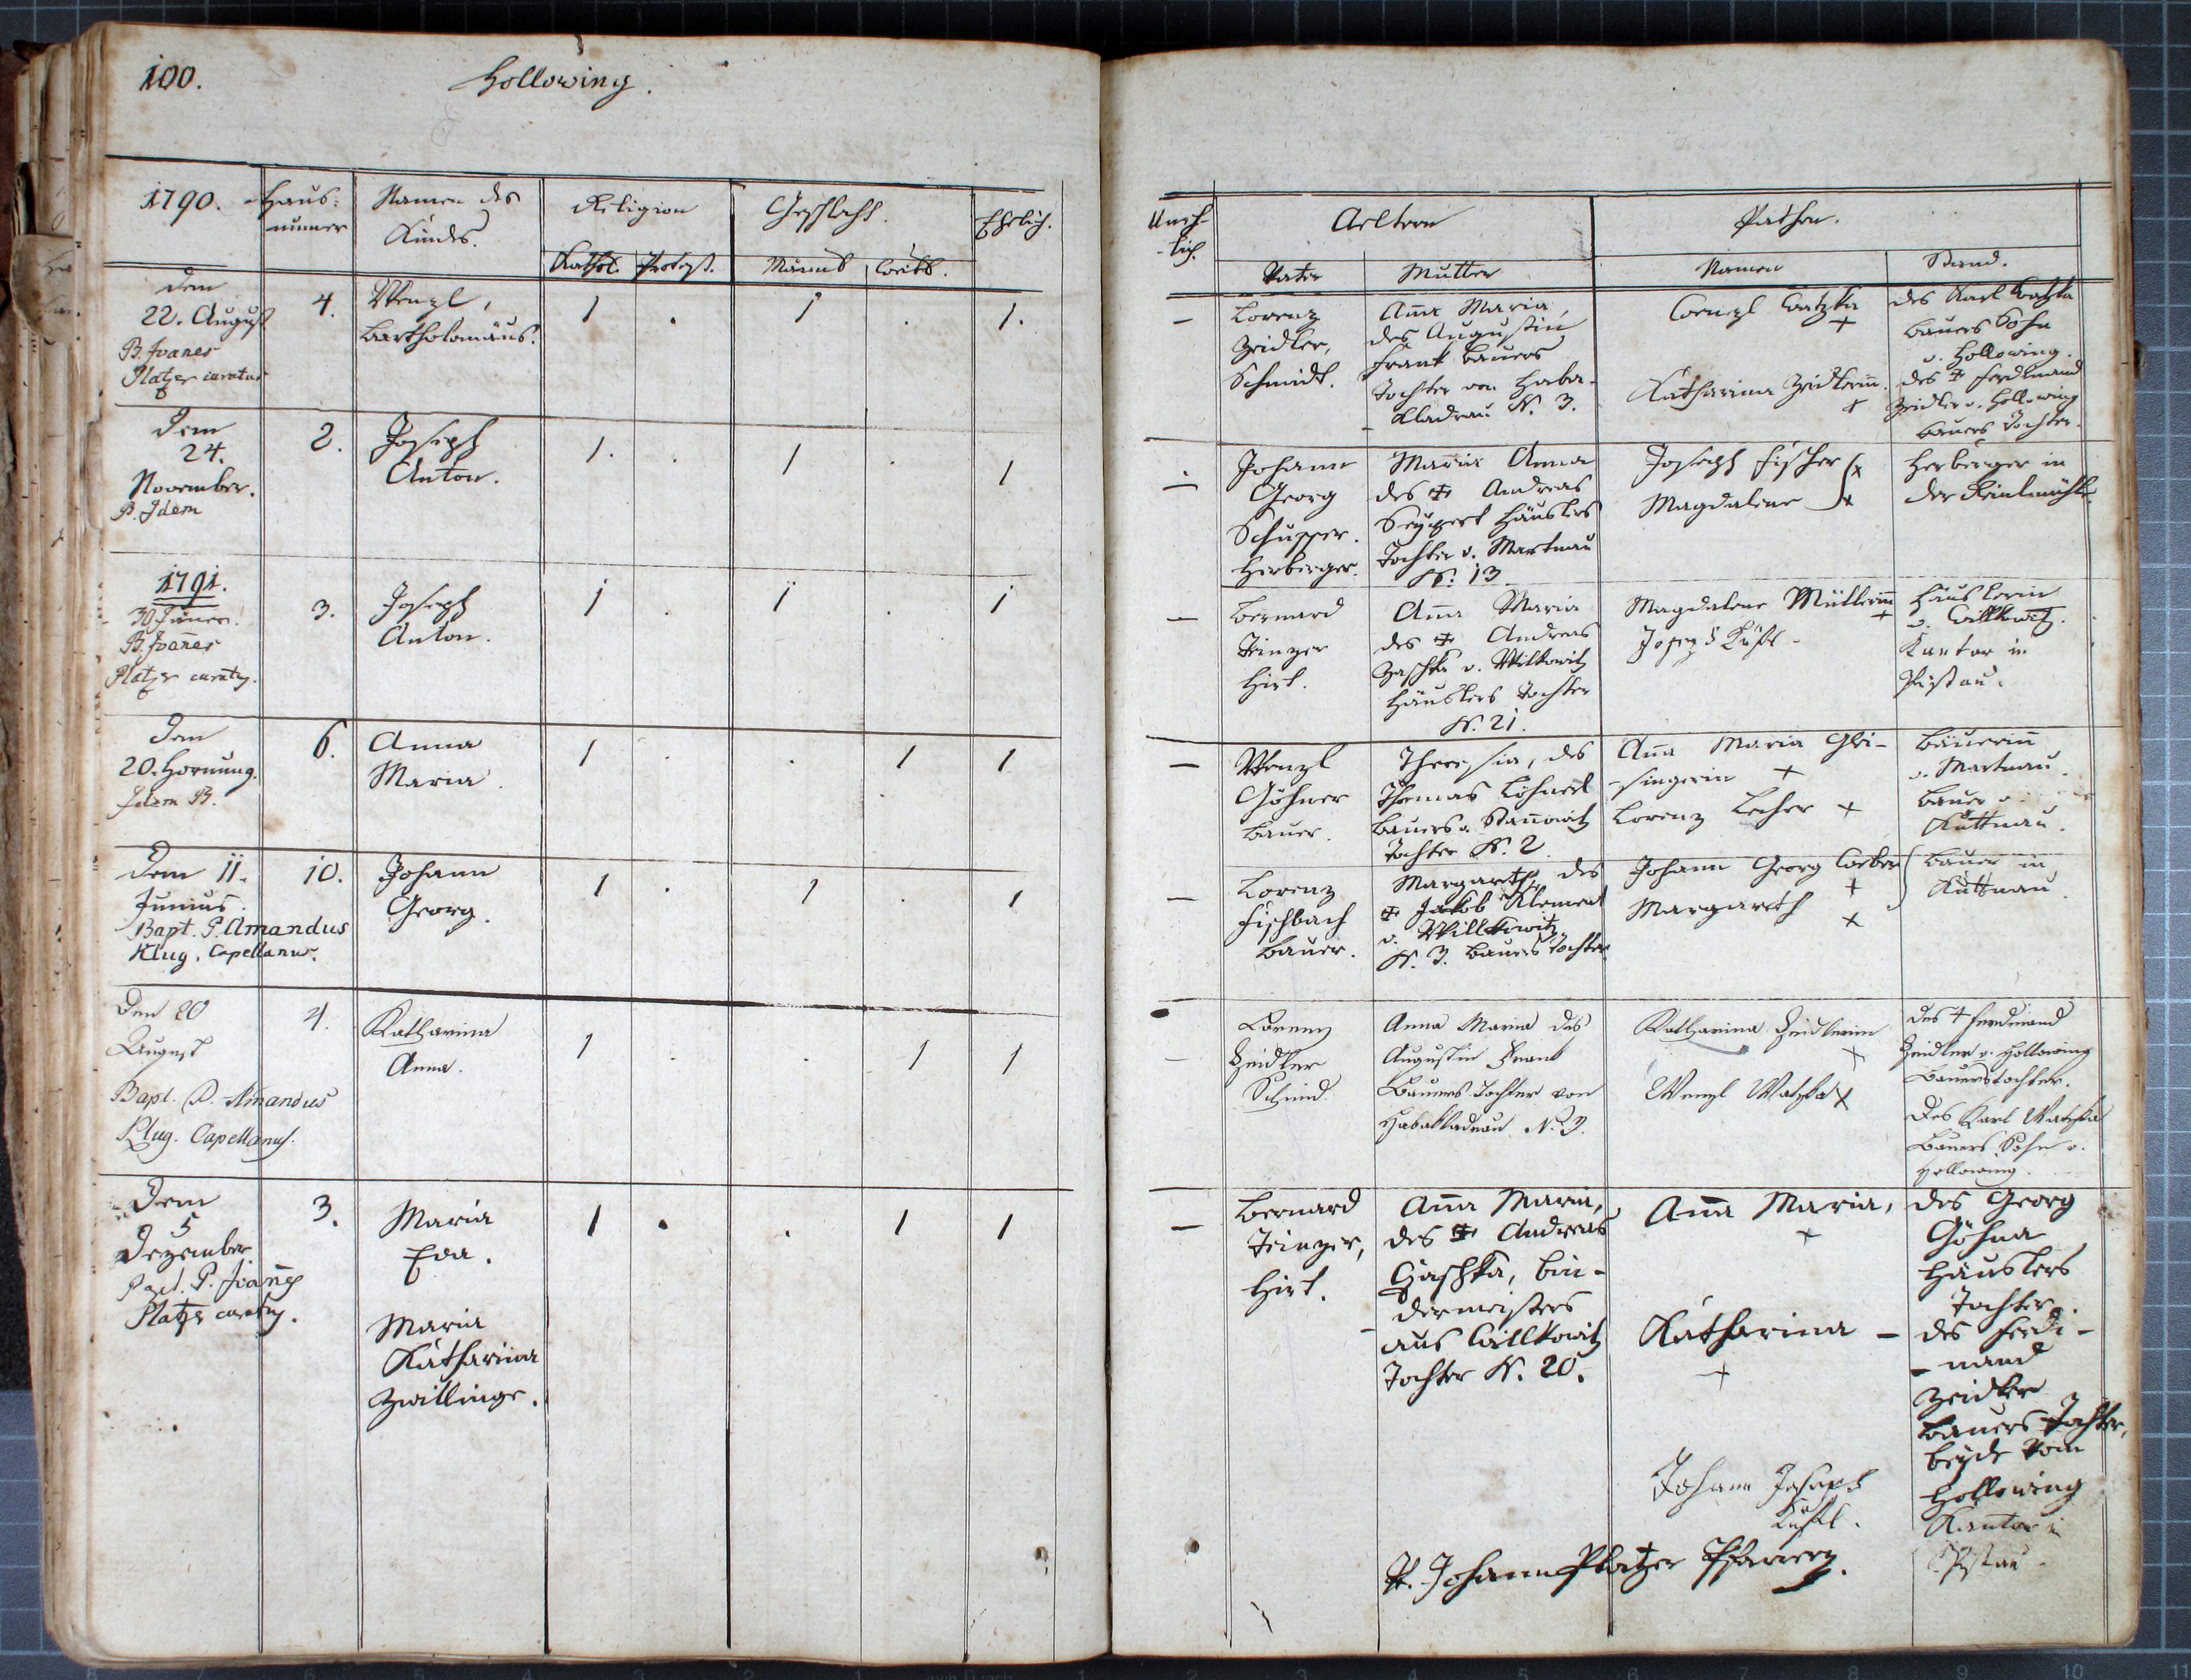 100.
Hollowing.
1790.
Haus-
numer
Namen des
Kindes.
Religion
Kathol. Protest.
Geschlecht.
Männl. Weibl.
Ehelich.
Uneh-
lich.
Aeltern
Vater
Mutter
Pathen.
Namen
Stand.
Dem
22. August
B. Joanes
Platzer curatus
4.
Wenzl,
Bartholomäus.
1 . 1 . 1.
–
Lorenz
Zeidler,
Schmidt.
Aña Maria,
des Augustin
Frank Bauers
Tochter von Haba-
Kladrau N. 3.
Wenzl Watzka
+
Katharina Zeidlerin.
+
des Karl Watzka
Bauers Sohn
v. Hollowing.
des + Ferdinand
Zeidler v. Hollowing
Bauers Tochter.
Dem
24.
November.
B. Idem
2.
Joseph
Anton.
1. . 1 . 1
–
Johann
Georg
Schupper.
Herberger.
Maria Anna
des + Andreas
Häuslers
Tochter v. Martnau
N: 13.
Joseph Fischer +
Magdalena +
Herberger in
der
1791.
30 Jäner.
B. Joañes
Platzer curatus.
3.
Joseph
Anton.
1 . 1 . 1
–
Bernard
Hirt.
Aña Maria
des + Andreas
v. Wilkowitz
Häuslers Tochter
N. 21.
Magdalena Müllerin
+
Joseph
Häuslerin
v. Willkowitz.
Kantor in
Pistau.
Dem
20. Hornung.
Idem B.
6.
Anna
Maria.
1 . . 1 1
–
Wenzl
Göhner
Bauer.
Theresia, des
Thomas
Bauers v.
Tochter N. 2.
Aña Maria Gei-
singerin +
Lorenz Lecher +
Bäuerin
v. Martnau.
Bauer v.
Kuttnau.
Dem 11.
Junius.
Bapt. P. Amandus
Klug, Capellanus.
10.
Johann
Georg.
1 . 1 . 1
–
Lorenz
Fischbach
Bauer.
Margareth, des
+ Jakob Klement
v. Willkowitz
N. 3. Bauers Tochter
Johann Georg Weber
+
Margareth
+
Bauer in
Kuttnau
Den 20
August
Bapt. P. Amandus
Klug. Capellanus.
4.
Katharina
Anna.
1 . . 1 1
–
Lorenz
Zeidler
Schmid.
Anna Maria des
Augustin Frank
Bauers Tochter von
Habakladrau N. 3.
Katharina Zeidlerin
+
Wenzl Watzka +
des + Ferdinand
Zeidler v. Hollowing
Bauerstochter.
Des Karl Watzka
Bauers Sohn v.
Hollowing.
Dem
5
Dezember
Bapt. P. Joañes
Platzer curatus.
3.
Maria
Eva.
Maria
Katharina
Zwillinge.
1 . . 1 1
–
Bernard
Hirt.
Aña Maria,
des + Andreas
Bin-
dermeisters
aus Willkowitz
Tochter N. 20.
Aña Maria,
+
Katharina –
+
Johann Joseph
P. Johann Platzer Pfarrer.
des Georg
Göhna
Häuslers
Tochter.
des Ferdi-
-nand
Zeidler
Bauers Tochter,
beyde von
Hollowing
Kantor in
Pistau.